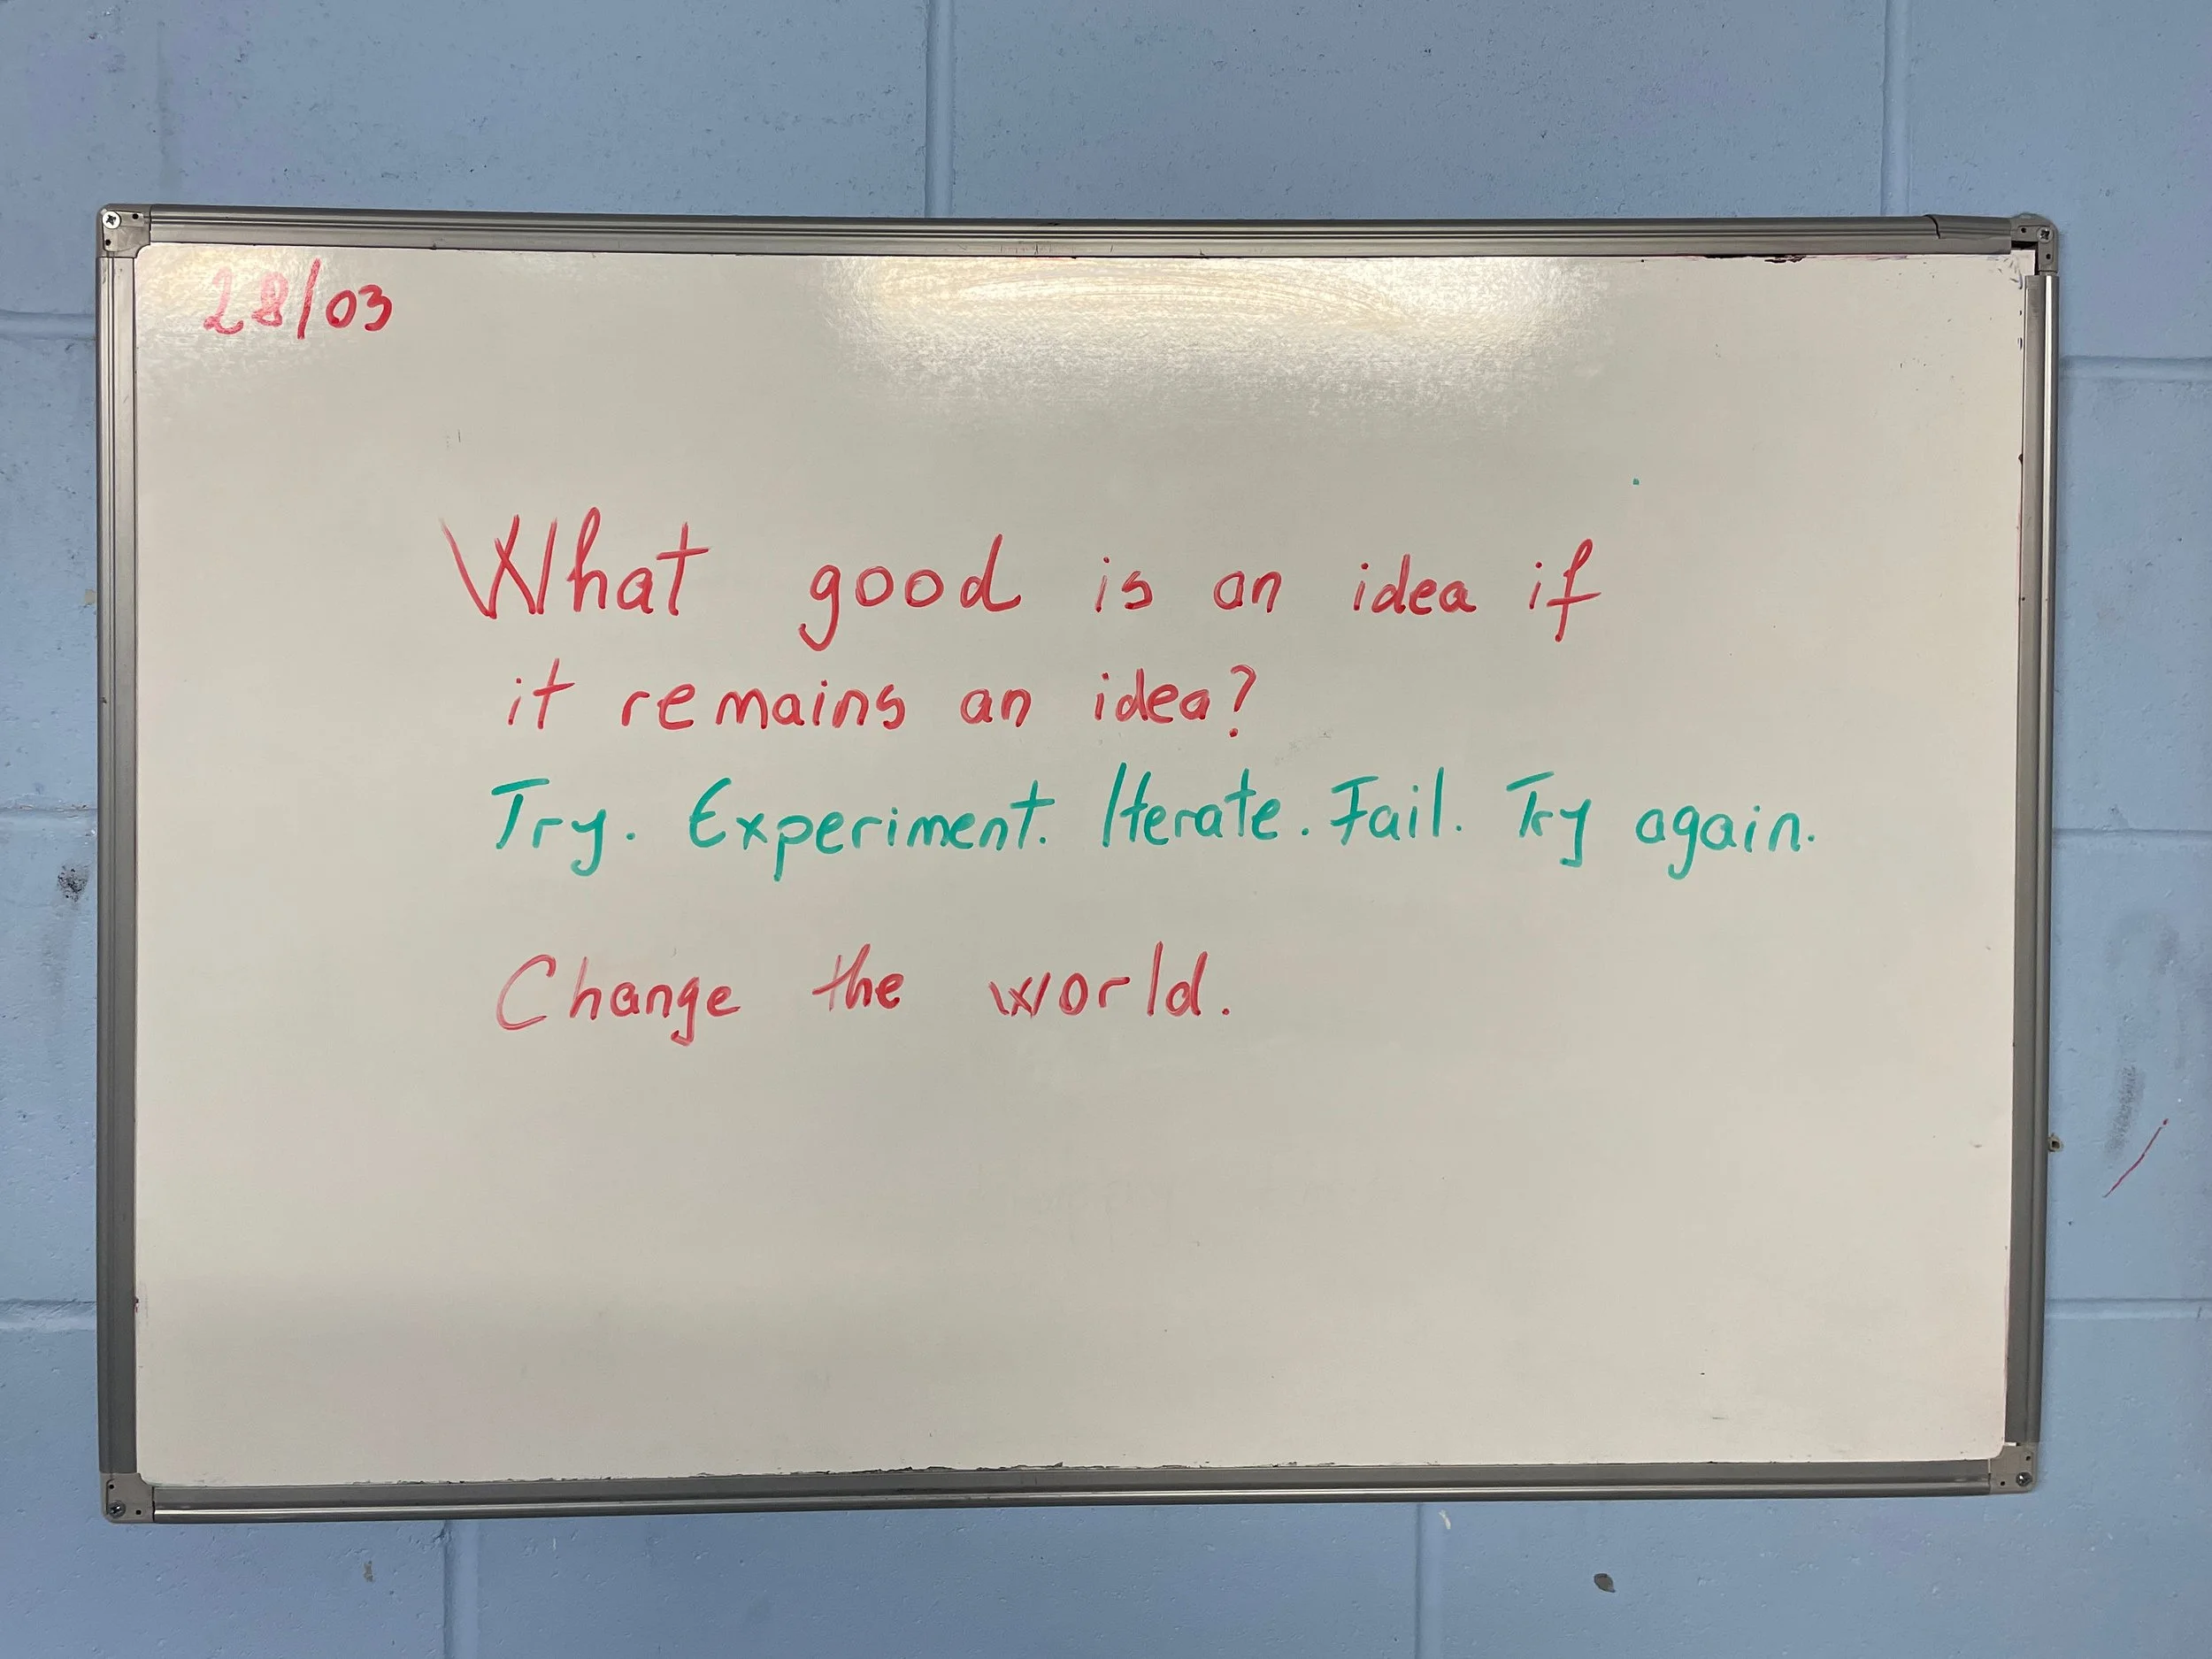 28/03
What good is an idea if
it remains an idea?
Try. Experiment. Iterate. Fail. Try again.
Change the world.